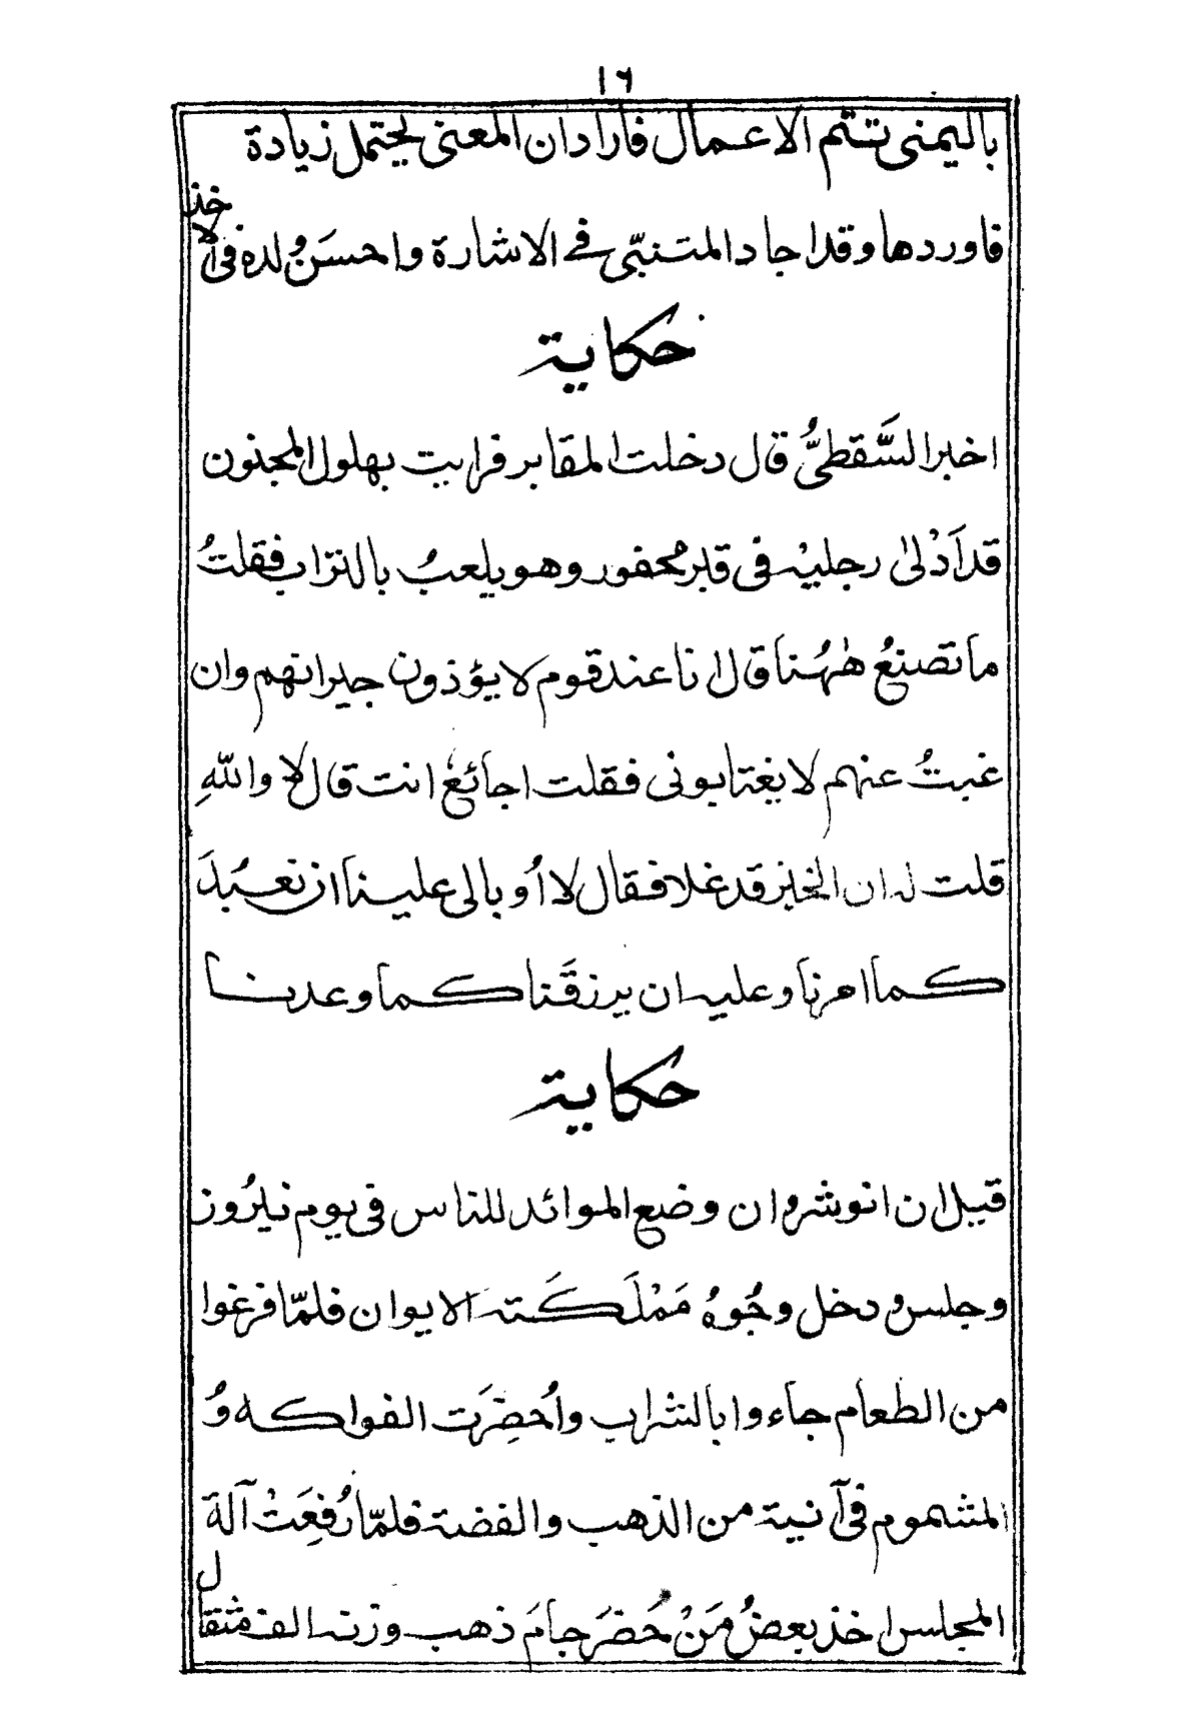 ١٦
باليمنى تتم الاعمال فاراد ان المعنى يحتمل زيادة
فاوردها وقد اجاد المتنبّى فے الاشارة واحسَنَ ولده فى الاخذ
حكاية
اخبر السَّقطىُّ قال دخلت المقابر فرايت بهلول المجنون
قد اَدْلىٰ رجليْه فى قبر محفور وهو يلعبُ بالتراب فقلتُ
ما تصنعُ هٰهُنا قال انا عند قوم لا يؤذون جيرانهم وان
غبتُ عنهم لا يغتابونى فقلت اجائعٌ انت قال لا واللّٰهِ
قلت له ان الخبز قد غلا فقال لا اُوبالى علينا ان نعبُدَ
كما امرنا وعليه ان يرزقَنا كما وعدنا
حكاية
قيل ان انوشروان وضع الموائد للناس فى يوم نيرُوز
وجلس ودخل وجُوهُ مَمْلَكَته الايوان فلمّا فرغوا
من الطعام جاءوا بالشراب واُحضِرَت الفواكه وُ
المشموم فى آنية من الذهب والفضة فلمّا رُفِعَتْ آلة
المجلس اخذ بعضُ مَنْ حَضَرَ جامَ ذهب وزنه الف مثقال